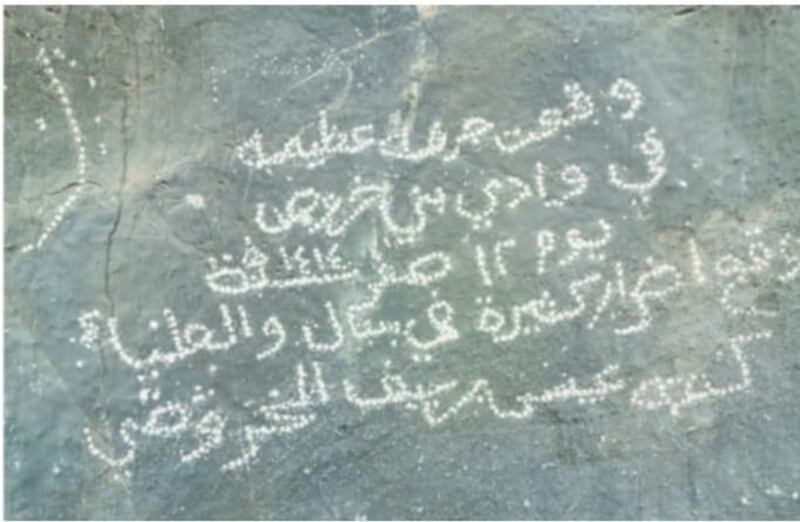 وقعت جرفة عظيمه
في وادي بني خروص
يوم ١٢ صفر سنة ١٤١٤
وقع اضرار كثيرة في ستال والعلياء
كتبه عيسى سيف الخروصي